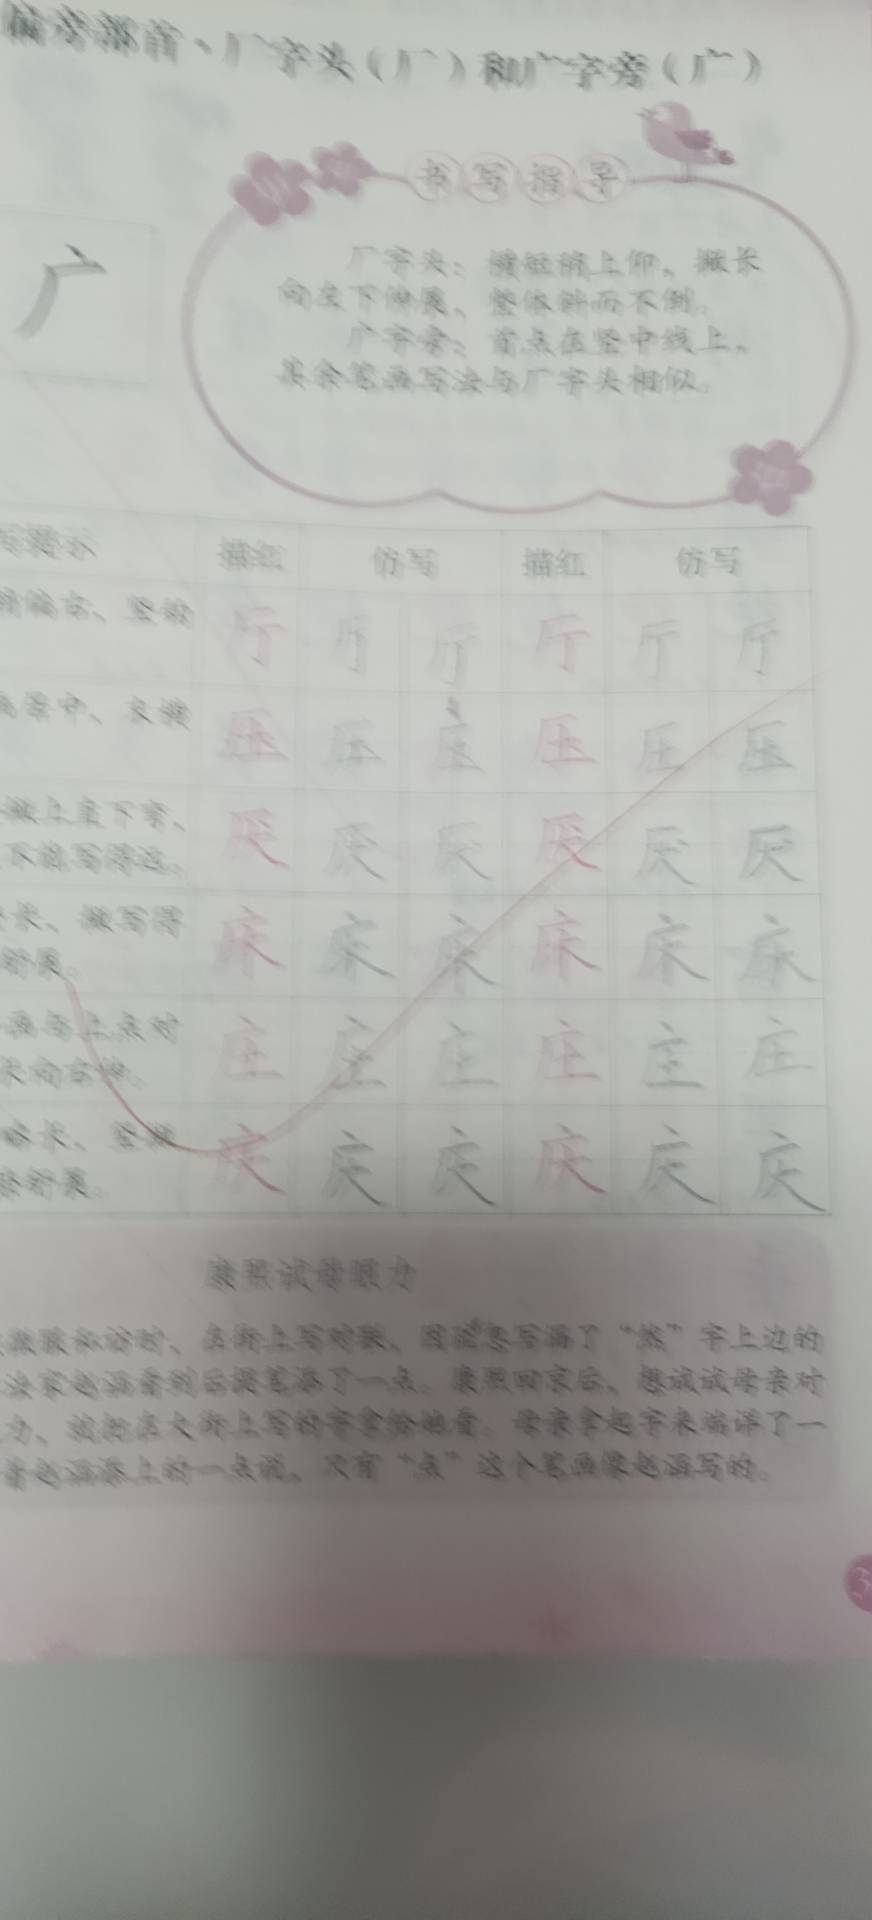 偏旁部首·厂字头（厂）和广字旁（广）
书写指导
广
厂字头：横短稍上仰，撇长
向左下伸展，整体斜而不倒。
广字旁：首点在竖中线上，
其余笔画写法与厂字头相似。
写提示 描红 仿写 描红 仿写
偏右、竖钩
厅 厅 厅 厅 厅 厅
居中、末横
压 压 压 压 压 压
撇上直下弯、
不能写得远。
厌 厌 厌 厌 厌 厌
长、撇写得
舒展。
床 床 床 床 床 床
画与上点对
长向右伸。
庄 庄 庄 庄 庄 庄
略长、竖撇
捺舒展。
庆 庆 庆 庆 庆 庆
康熙试母眼力
微服私访时，在街上写对联，因疏忽写漏了“熊”字上边的
法家赵涵看到后提笔添了一点。康熙回京后，想试试母亲对
力，就把在大街上写的字拿给她看。母亲拿起字来端详了一
着赵涵添上的一点说，只有“点”这个笔画像赵涵写的。
3